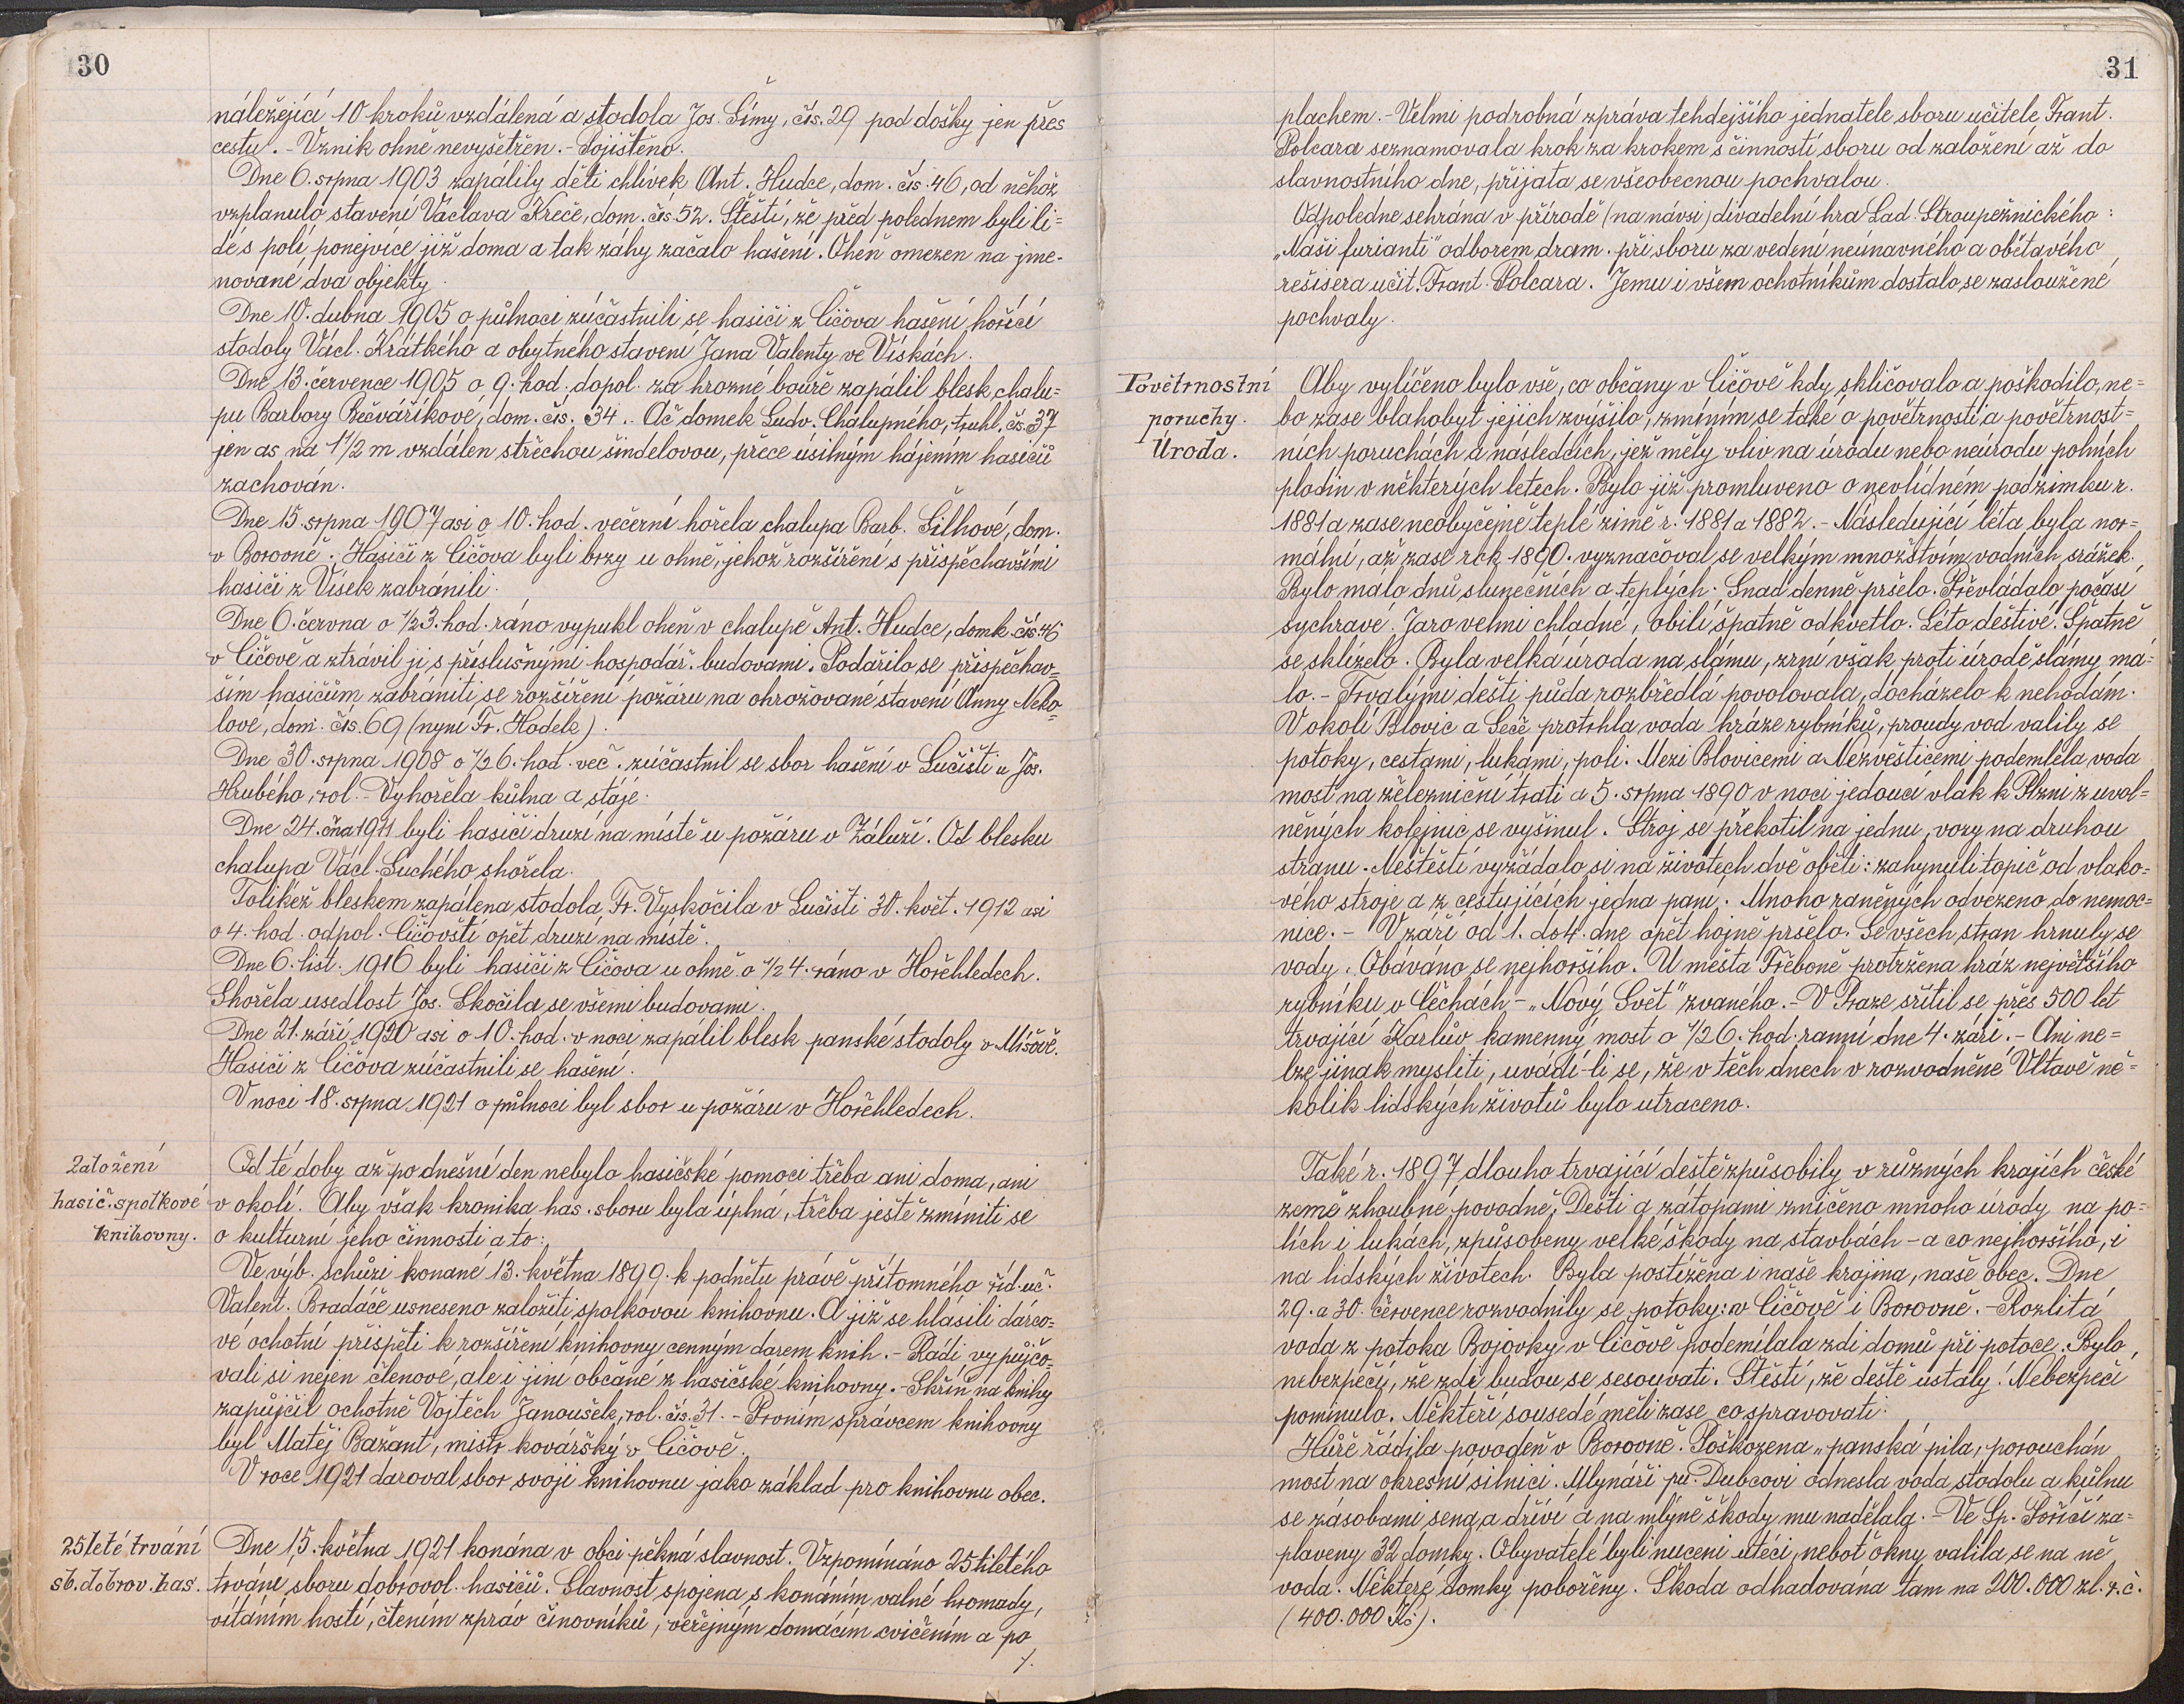 30
náležející 10 kroků vzdálená a stodola Jos. Šímy, čís. 29 pod došky jen přes
cestu. - Vznik ohně nevyšetřen. - Pojištěno.
Dne 6. srpna 1903 zapálily děti chlívek Ant. Hudce, dom. čís. 46, od něhož
vzplanulo stavení Václava Kreče, dom. čís 52. Štěstí, že před polednem byli li=
dé s polí ponejvíce již doma a tak záhy začalo hašení. Oheň omezen na jme-
nované dva objekty.
Dne 10. dubna 1905 o půlnoci zúčastnili se hasiči z Čičova hašení hořící
stodoly Václ. Krátkého a obytného stavení Jana Valenty ve Vískách.
Dne 13. července 1905 o 9. hod. dopol. za hrozné bouře zapálil blesk chalu=
pu Barbory Bečváříkové, dom. čís. 34. Ač domek Ludv. Chalupného, truhl. čs. 37
jen as na 1 1/2 m vzdálen střechou šindelovou, přece úsilným hájením hasičů
zachován.
Dne 15. srpna 1907 asi o 10. hod. večerní hořela chalupa Barb. Šilhové, dom.
v Borovně. Hasiči z Čičova byli brzy u ohně, jehož rozšíření s přispěchavšími
hasiči z Vísek zabránili.
Dne 6. června o 1/2 3. hod. ráno vypukl oheň v chalupě Ant. Hudce, domk. čís. 46
v Čičově a ztrávil ji s příslušnými hospodář. budovami. Podařilo se přispěchav=
ším hasičům zabrániti se rozšíření požáru na ohrožované stavení Anny Neko=
lové, dom. čís. 69 (nyní Fr. Hodek).
Dne 30. srpna 1908 o 1/2 6. hod. več. zúčastnil se sbor hašení v Lučišti u Jos.
Hrubého, rol. - Vyhořela kůlna a stáje.
Dne 24. čna 1911 byli hasiči druzí na místě u požáru v Záluží. Od blesku
chalupa Václ. Suchého shořela.
Tolikéž bleskem zapálena stodola Fr. Vyskočila v Lučišti 30. květ. 1912 asi
o 4. hod. odpol. Čičovští opět druzí na místě.
Dne 6. list. 1916 byli hasiči z Čičova u ohně o 1/2 4. ráno v Hořehledech.
Shořela usedlost Jos. Skočila se všemi budovami.
Dne 21. září 1920 asi o 10. hod. v noci zapálil blesk panské stodoly v Mišově.
Hasiči z Čičova zúčastnili se hašení.
V noci 18. srpna 1921 o půlnoci byl sbor u požáru v Hořehledech.
Založení
hasič. spolkové
knihovny.
Od té doby až po dnešní den nebylo hasičské pomoci třeba ani doma, ani
v okolí. Aby však kronika has. sboru byla úplná, třeba ještě zmíniti se
o kulturní jeho činnosti a to:
Ve výb. schůzi konané 13. května 1899. k podnětu právě přítomného říd. uč.
Valent. Bradáče usneseno založiti spolkovou knihovnu. A již se hlásili dárco=
vé ochotní přispěti k rozšíření knihovny cenným darem knih. - Rádi vypůjčo=
vali si nejen členové, ale i jiní občané z hasičské knihovny. - Skříň na knihy
zapůjčil ochotně Vojtěch Janoušek, rol. čís. 31. - Prvním správcem knihovny
byl Matěj Bažant, mistr kovářský v Čičově.
V roce 1921 daroval sbor svoji knihovnu jako základ pro knihovnu obec.
25leté trvání
sb. dobrov. has.
Dne 15. května 1921 konána v obci pěkná slavnost. Vzpomínáno 25tiletého
trvání sboru dobrovol. hasičů. Slavnost spojena s konáním valné hromady,
vítáním hostí, čtením zpráv činovníků, veřejným domácím cvičením a po
/.
31
plachem. - Velmi podrobná zpráva tehdejšího jednatele sboru učitele Frant.
Polcara seznamovala krok za krokem s činností sboru od založení až do
slavnostního dne, přijata se všeobecnou pochvalou.
Odpoledne sehrána v přírodě (na návsi) divadelní hra Lad. Stroupežnického:
„Naši furianti" odborem dram. při sboru za vedení neúnavného a obětavého
režisera učit. Frant. Polcara. Jemu i všem ochotníkům dostalo se zasloužené
pochvaly.
Povětrnostní
poruchy.
Úroda.
Aby vylíčeno bylo vše, co občany v Čičově kdy skličovalo a poškodilo, ne=
bo zase blahobyt jejich zvýšilo, zmíním se také o povětrnosti a povětrnost=
ních poruchách a následcích, jež měly vliv na úrodu nebo neúrodu polních
plodin v některých letech. Bylo již promluveno o nevlídném podzimku r.
1881 a zase neobyčejně teplé zimě r. 1881 a 1882. - Následující léta byla nor=
mální, až zase rok 1890. vyznačoval se velkým množstvím vodních srážek.
Bylo málo dnů slunečních a teplých. Snad denně pršelo. Převládalo počasí
sychravé. Jaro velmi chladné, obilí špatně odkvetlo. Léto deštivé. Špatně
se sklízelo. Byla velká úroda na slámu, zrní však proti úrodě slámy má=
lo. - Trvalými dešti půda rozbředlá povolovala, docházelo k nehodám.
V okolí Blovic a Seče protrhla voda hráze rybníků, proudy vod valily se
potoky, cestami, lukami, poli. Mezi Blovicemi a Nezvěsticemi podemlela voda
most na železniční trati a 5. srpna 1890 v noci jedoucí vlak k Plzni z uvol-
něných kolejnic se vyšinul. Stroj se překotil na jednu, vozy na druhou
stranu. Neštěstí vyžádalo si na životech dvě oběti: zahynuli topič od vlako=
vého stroje a z cestujících jedna paní. Mnoho raněných odvezeno do nemoc=
nice. - V září od 1. do 4. dne opět hojně pršelo. Se všech stran hrnuly se
vody. Obáváno se nejhoršího. U města Třeboně protržena hráz největšího
rybníku v Čechách - „Nový Svět" zvaného. - V Praze sřítil se přes 500 let
trvající Karlův kamenný most o 1/2 6. hod. ranní dne 4. září. - Ani ne=
lze jinak mysliti, uvádí-li se, že v těch dnech v rozvodněné Vltavě ně=
kolik lidských životů bylo utraceno.
Také r. 1897 dlouho trvající deště způsobily v různých krajích české
země zhoubné povodně. Dešti a zátopami zničeno mnoho úrody na po=
lích i lukách, způsobeny velké škody na stavbách - a co nejhoršího, i
na lidských životech. Byla postižena i naše krajina, naše obec. Dne
29. a 30. července rozvodnily se potoky: v Čičově i Borovně. - Rozlitá
voda z potoka Bojovky v Čičově podemílala zdi domů při potoce. Bylo
nebezpečí, že zdi budou se sesouvati. Štěstí, že deště ustaly! Nebezpečí
pominulo. Někteří sousedé měli zase co spravovati.
Hůře řádila povodeň v Borovně. Poškozena „panská pila, porouchán
most na okresní silnici. Mlynáři pu. Dubcovi odnesla voda stodolu a kůlnu
se zásobami sena a dříví a na mlýně škody mu nadělala. - Ve Sp. Poříčí za=
plaveny 32 domky. Obyvatelé byli nuceni utéci, neboť okny valila se na ně
voda. Některé domky pobořeny. Škoda odhadována tam na 200.000 zl. r. č.
(400.000 Kč).